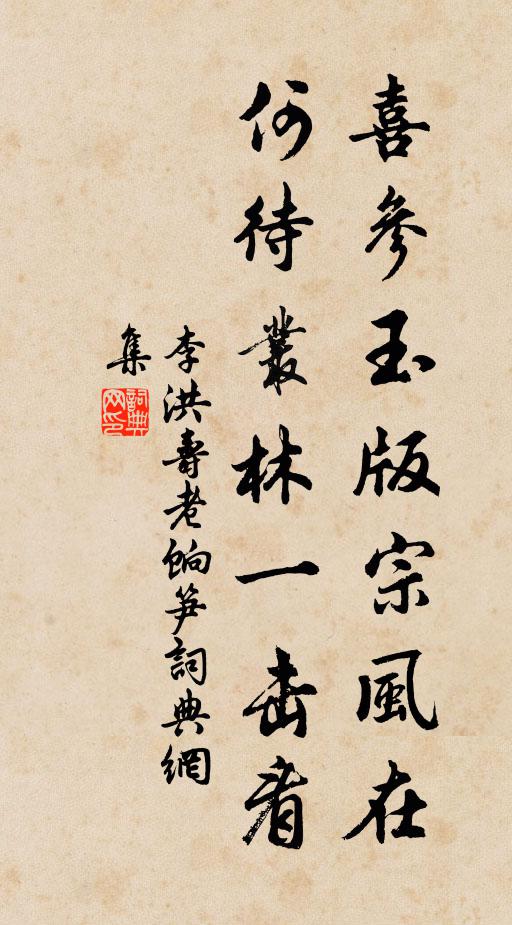 喜參玉版宗風在
何待叢林一击看
李洪壽老餉笋詞典網
集
詞典网印